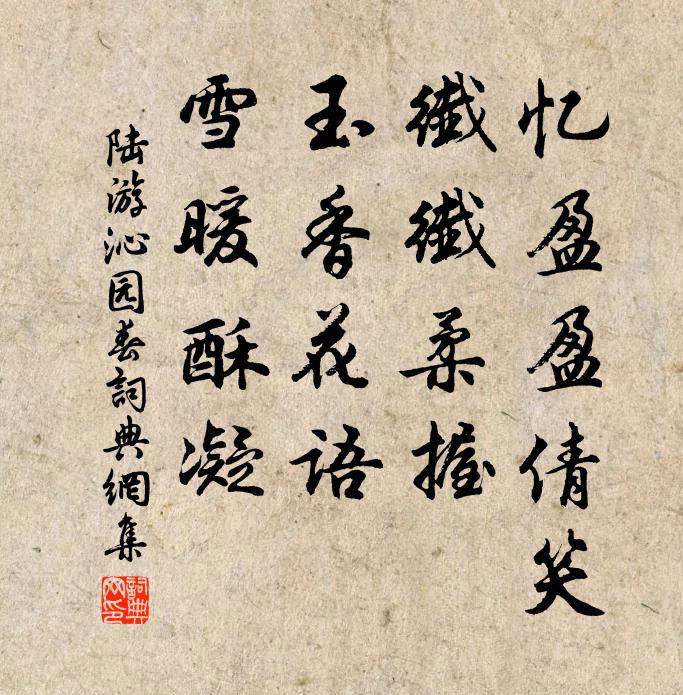 忆盈盈倩笑
纖纖柔握
玉香花语
雪暖酥凝
陆游沁园春詞典網集
詞典网印